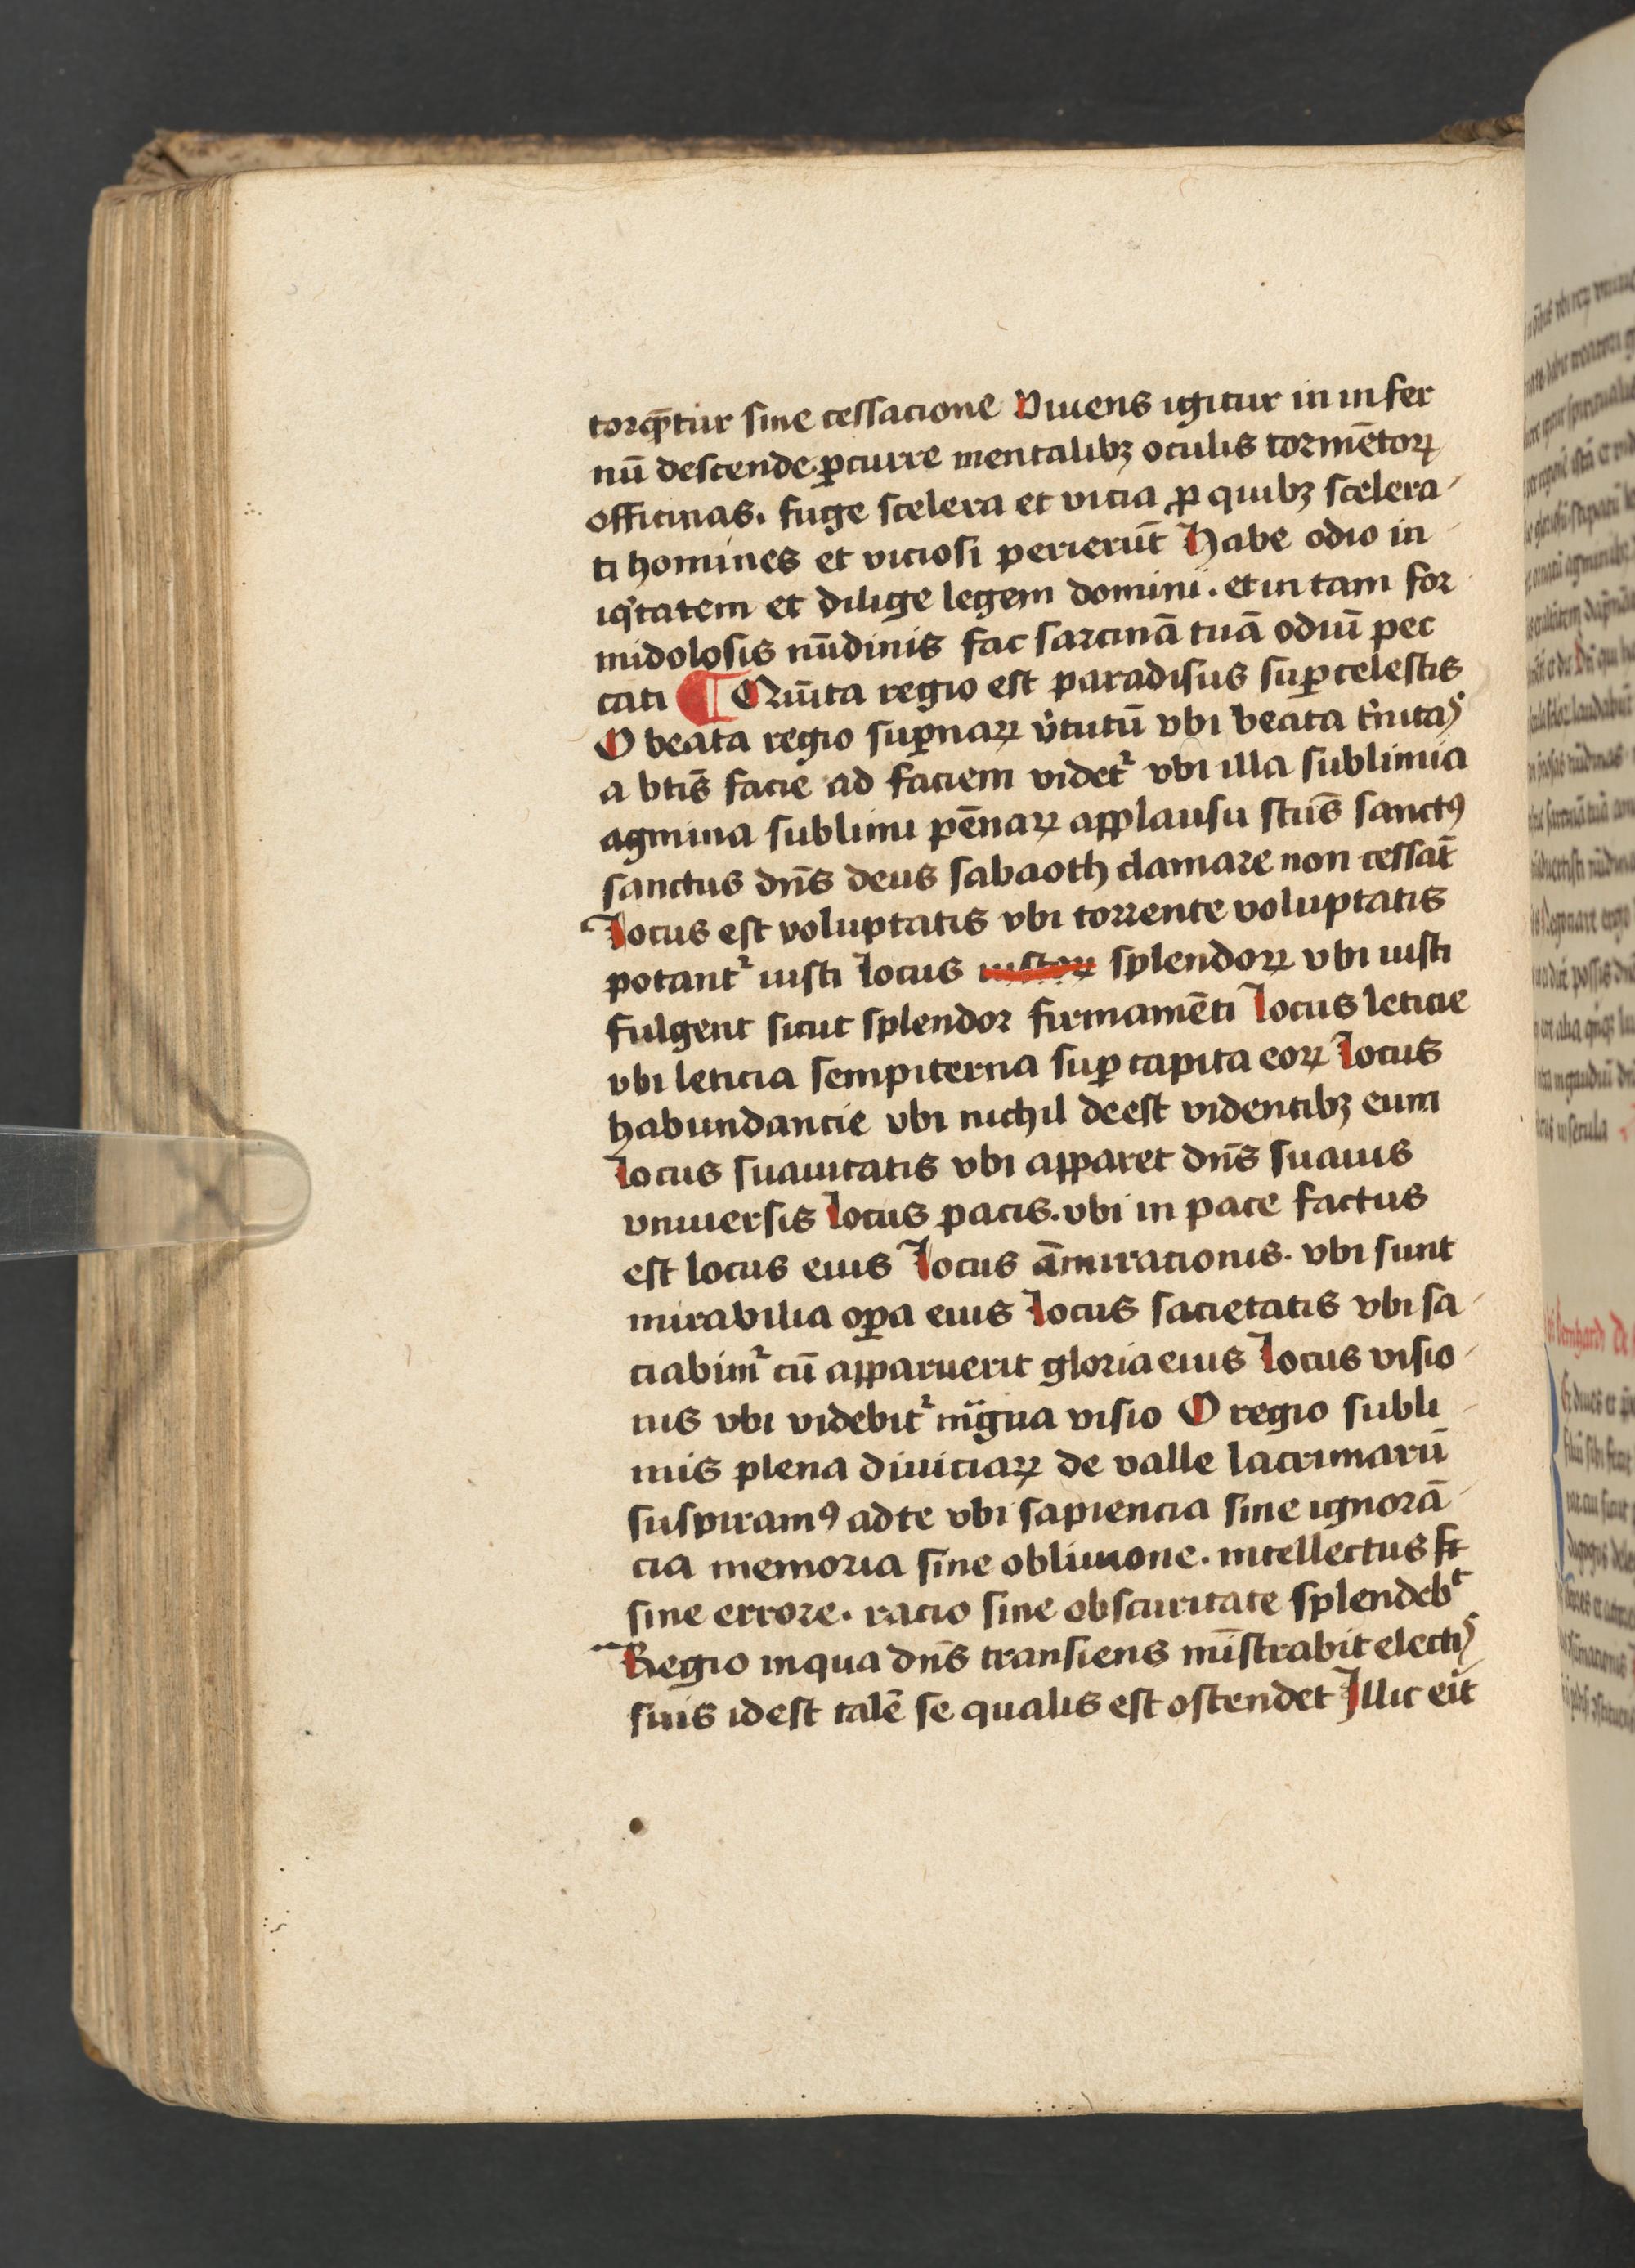 torqꝫtur sine cessacione Viuens igitur in infer
nū descende. ꝑcurre mentalibꝫ oculis tormētoꝝ
officinas. fuge scelera et vicia ꝓ quibꝫ scelera
ti homines et viciosi perierūt Habe odio in
iqͥtatem et dilige legem domini. et in tam for
midolosis nūdinis fac sarcinā tuā odiū pec
cati ¶ Quīta regio est paradisus suꝑcelestis
O beata regio suꝑnaꝝ v̓tutū vbi beata tͥnitaꝭ
a btīs facie ad faciem videtᷣ vbi illa sublimia
agmina sublimi pēnaꝝ applausu sctūs sanctꝰ
sanctus dn̄s deus sabaoth clamare non cessāt
locus est voluptatis vbi torrente voluptatis
potantᷣ iusti locus iustoꝝ splendoꝝ vbi iusti
fulgent sicut splendor firmamēti locus leticie
vbi leticia sempiterna suꝑ capita eoꝝ locus
habundancie vbi nichil deest videntibꝫ eum
locus suauitatis vbi apparet dn̄s suauis
vniuersis locus pacis. vbi in pace factus
est locus eius locus āmiracionis. vbi sunt
mirabilia oꝑa eius locus sacietatis vbi sa
ciabimᷣ cū apparuerit gloria eius locus visio
nis vbi videbitᷣ mͣgna visio O regio subli
mis plena diuiciaꝝ de valle lacrimarū
suspiramꝰ ad te vbi sapiencia sine ignorā
cia memoria sine obliuione. intellectus
sine errore. racio sine obscuritate splendebᵗ
Regio in qua dn̄s transiens mīstrabit electꝭ
suis id est talē se qualis est ostendet Illic eīt